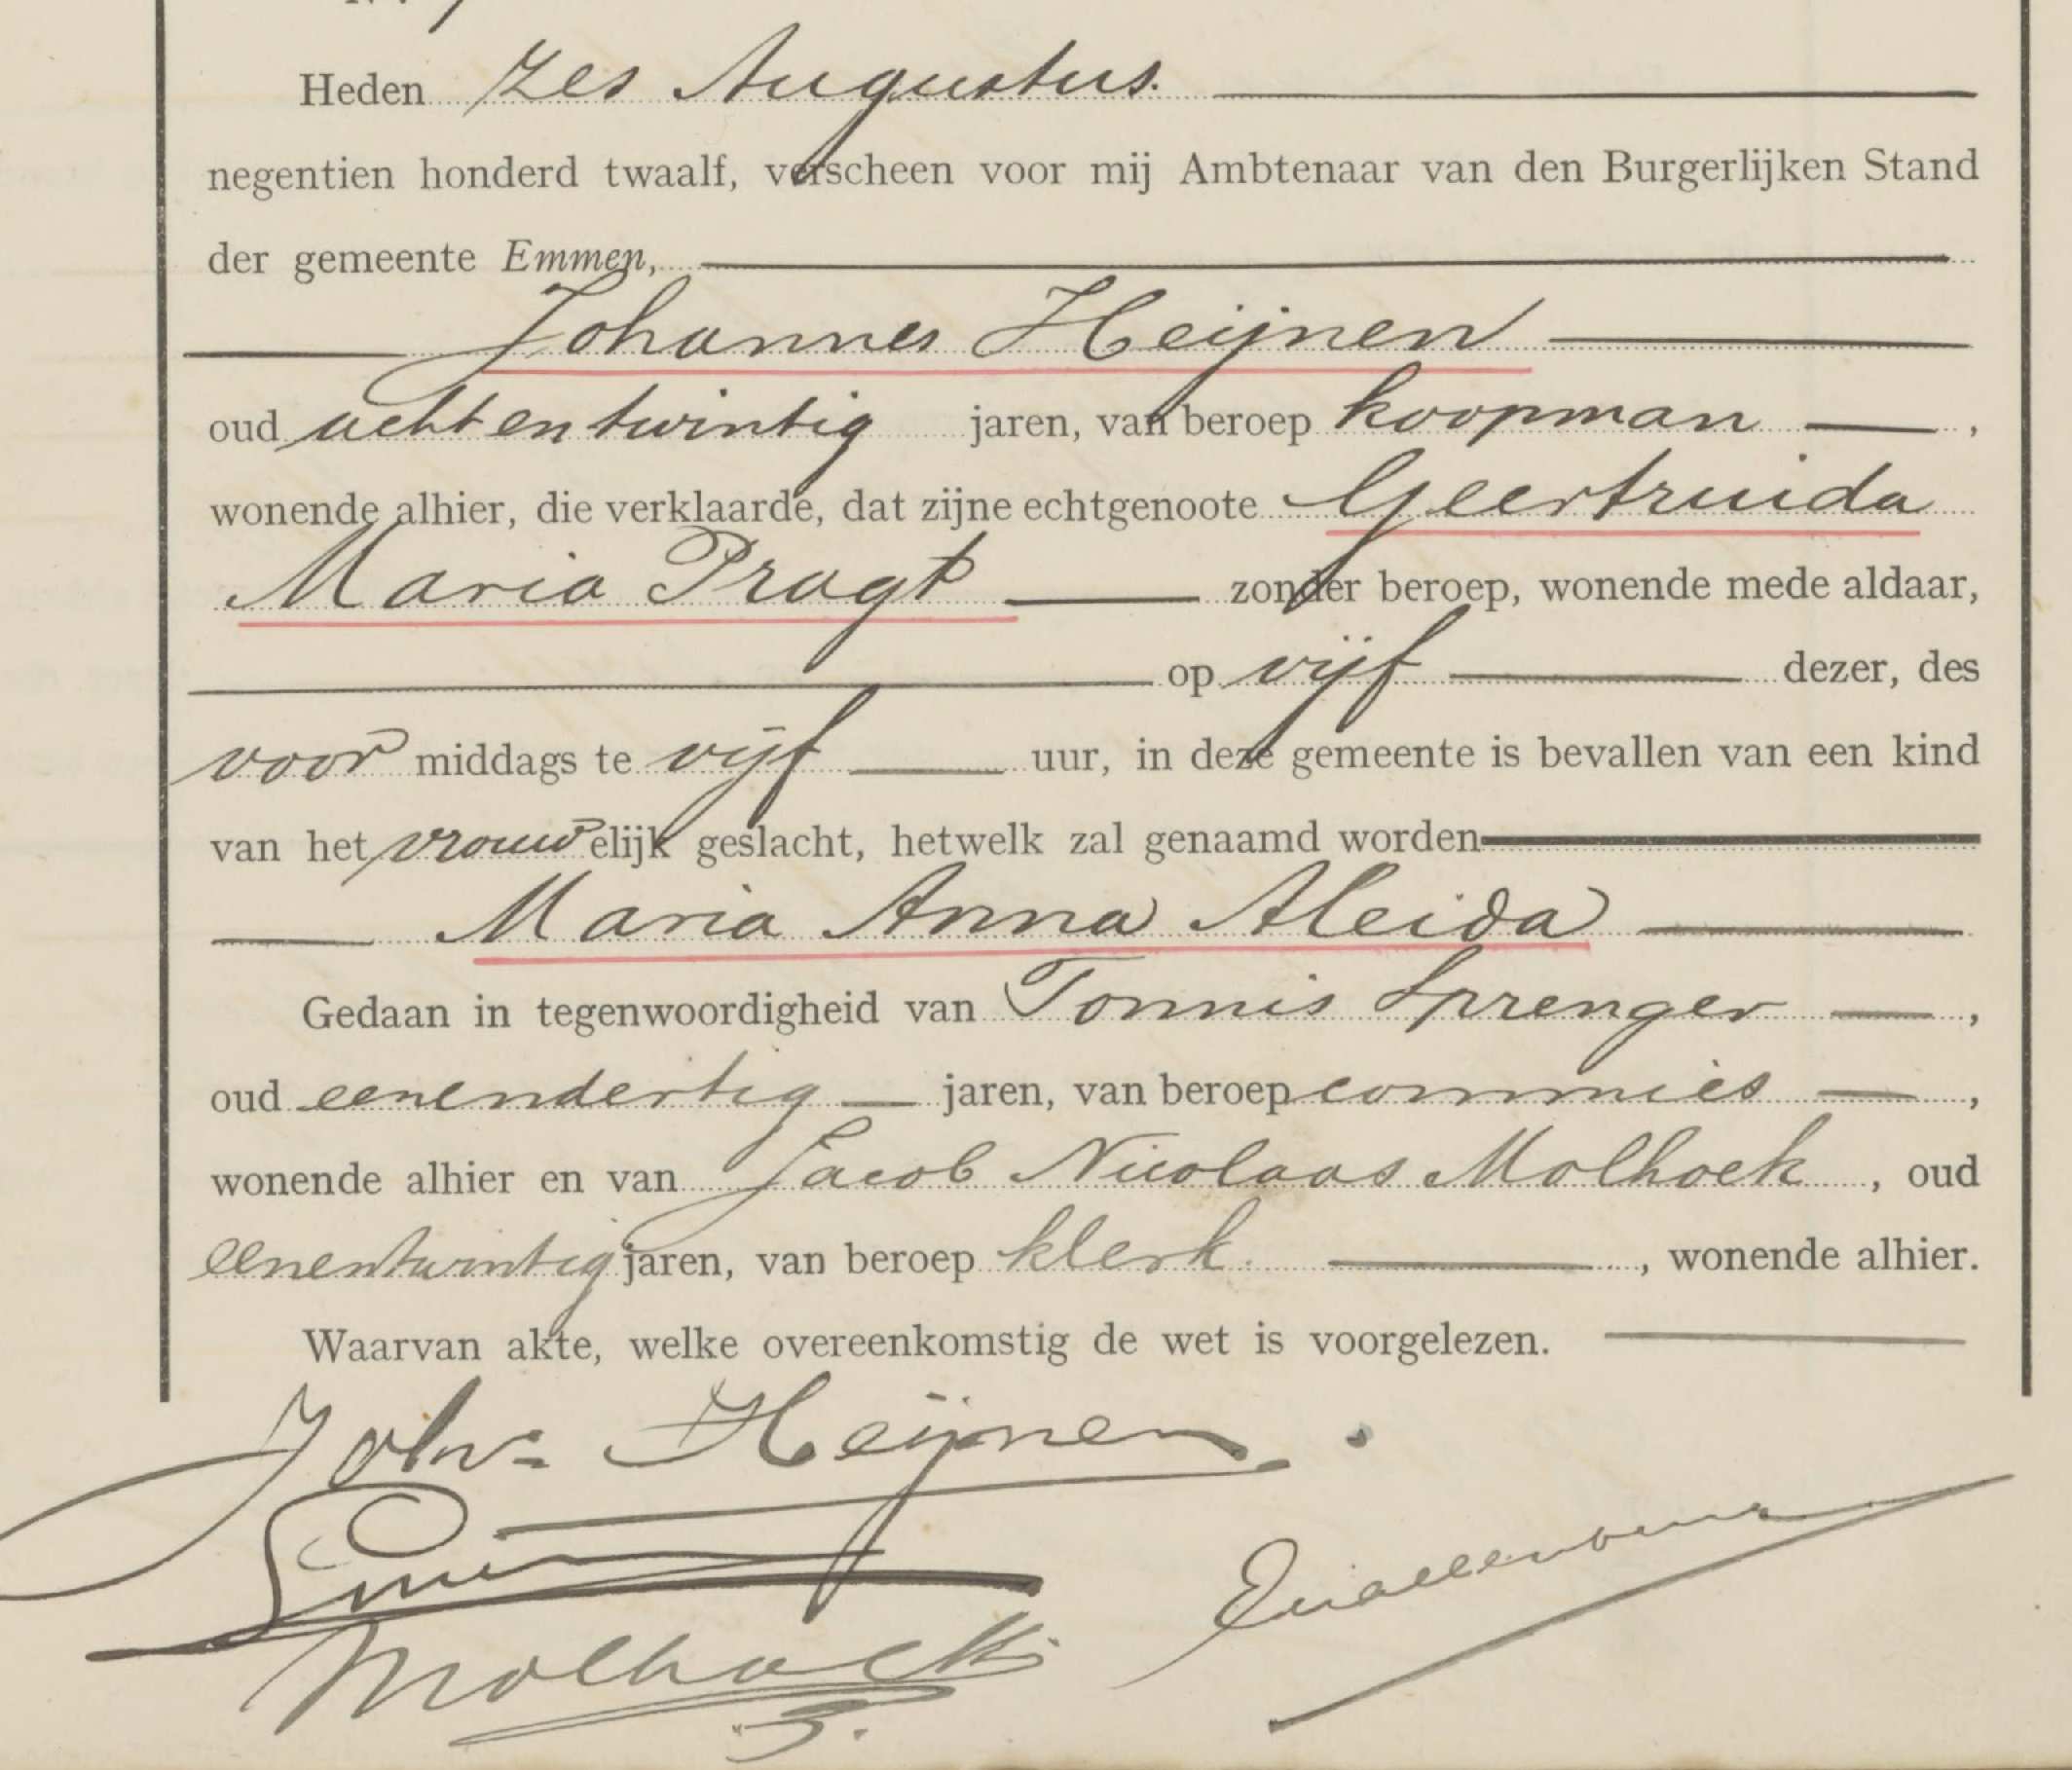 Heden zes Augustus.
negentien honderd twaalf, verscheen voor mij Ambtenaar van den Burgerlijken Stand
der gemeente Emmen,
Johannes Heijnen
oud acht en twintig jaren, van beroep koopman ,
wonende alhier, die verklaarde, dat zijne echtgenoote Geertruida
Maria Pragt zonder beroep, wonende mede aldaar,
op vijf dezer, des
voor middags te vijf uur, in deze gemeente is bevallen van een kind
van het vrouwelijk geslacht, hetwelk zal genaamd worden
Maria Anna Aleida
Gedaan in tegenwoordigheid van Tonnis Sprenger ,
oud eenendertig jaren, van beroep commies ,
wonende alhier en van Jacob Nicolaas Molhoek , oud
eenentwintig jaren, van beroep klerk , wonende alhier.
Waarvan akte, welke overeenkomstig de wet is voorgelezen.
Johs Heijnen.
Molhoek